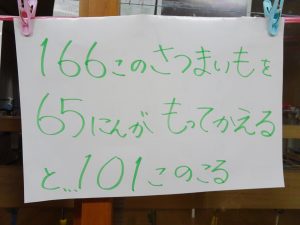 166このさつまいもを
65にんが もってかえる
と…101このこる